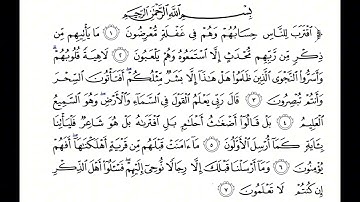 بِسْمِ اللَّهِ الرَّحْمَٰنِ الرَّحِيمِ
﴿ اقْتَرَبَ لِلنَّاسِ حِسَابُهُمْ وَهُمْ فِي غَفْلَةٍ مُّعْرِضُونَ ١ مَا يَأْتِيهِم مِّن
ذِكْرٍ مِّن رَّبِّهِم مُّحْدَثٍ إِلَّا اسْتَمَعُوهُ وَهُمْ يَلْعَبُونَ ٢ لَاهِيَةً قُلُوبُهُمْ ۗ
وَأَسَرُّوا النَّجْوَى الَّذِينَ ظَلَمُوا هَلْ هَٰذَا إِلَّا بَشَرٌ مِّثْلُكُمْ ۖ أَفَتَأْتُونَ السِّحْرَ
وَأَنتُمْ تُبْصِرُونَ ٣ قَالَ رَبِّي يَعْلَمُ الْقَوْلَ فِي السَّمَاءِ وَالْأَرْضِ ۖ وَهُوَ السَّمِيعُ
الْعَلِيمُ ٤ بَلْ قَالُوا أَضْغَاثُ أَحْلَامٍ بَلِ افْتَرَاهُ بَلْ هُوَ شَاعِرٌ فَلْيَأْتِنَا
بِآيَةٍ كَمَا أُرْسِلَ الْأَوَّلُونَ ٥ مَا آمَنَتْ قَبْلَهُم مِّن قَرْيَةٍ أَهْلَكْنَاهَا ۖ أَفَهُمْ
يُؤْمِنُونَ ٦ وَمَا أَرْسَلْنَا قَبْلَكَ إِلَّا رِجَالًا نُّوحِي إِلَيْهِمْ ۖ فَاسْأَلُوا أَهْلَ الذِّكْرِ
إِن كُنتُمْ لَا تَعْلَمُونَ ٧